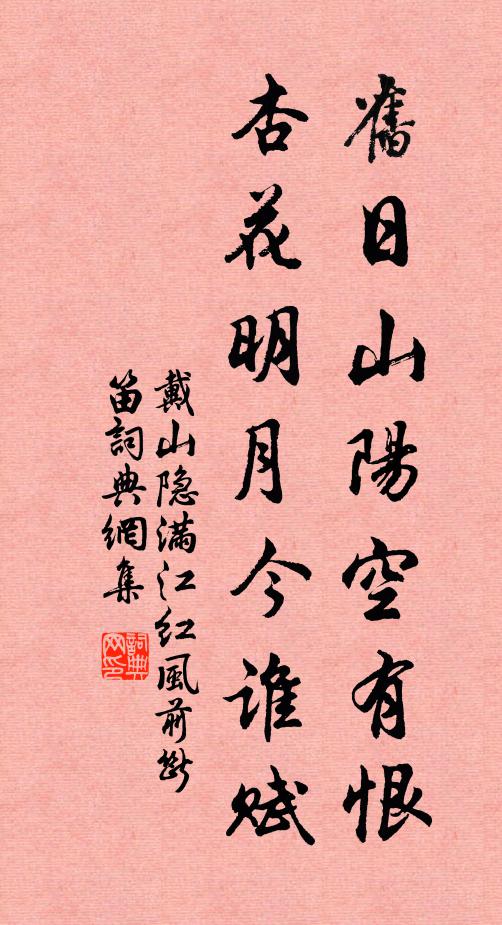 舊日山陽空有恨
杏花明月今誰賦
戴山隐滿江红風前斷
笛詞典網集
詞典
网印